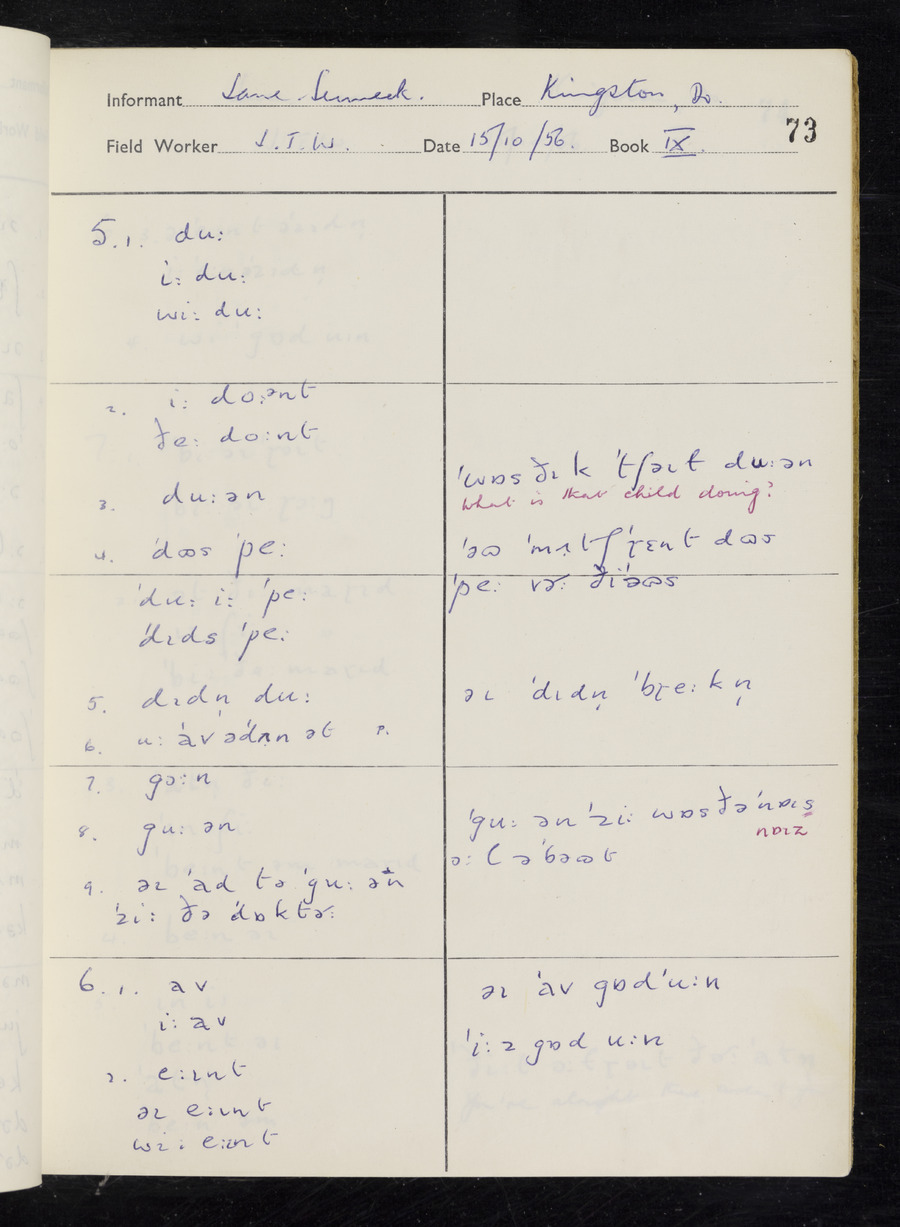 Informant Place Kingston, Do.
73
Field Worker J.T.W. Date 15/10/56. Book IX.
5.1. du:
i: du:
wi: du:
2. i: do:ənt
ðe: do:nt
3. du:ən
'wɒs ðɪk 'tʃəɪt du:ən
What is that child doing?
4. 'dʊs 'pe:
'du: i: 'pe:
'dɪds 'pe:
'pe: vɚ: ði'əʊs
5. dɪdn̩ du:
əɪ 'dɪdn̩ 'bɽe:kn̩
6.
7. gɔ:n
8. gu:ən
'gu: ən 'zi: wɒs ðə'nɒɪs
nɒɪz
ɔ:l ə'bəʊt
9. əɪ 'ad tə 'gu: ən
'zi: ðə 'dɒktɚ:
6.1. av
i: av
əɪ 'av gɒd'u:n
'i:z gɒd u:n
2. e:ɪnt
əɪ e:ɪnt
wi: e:ɪnt